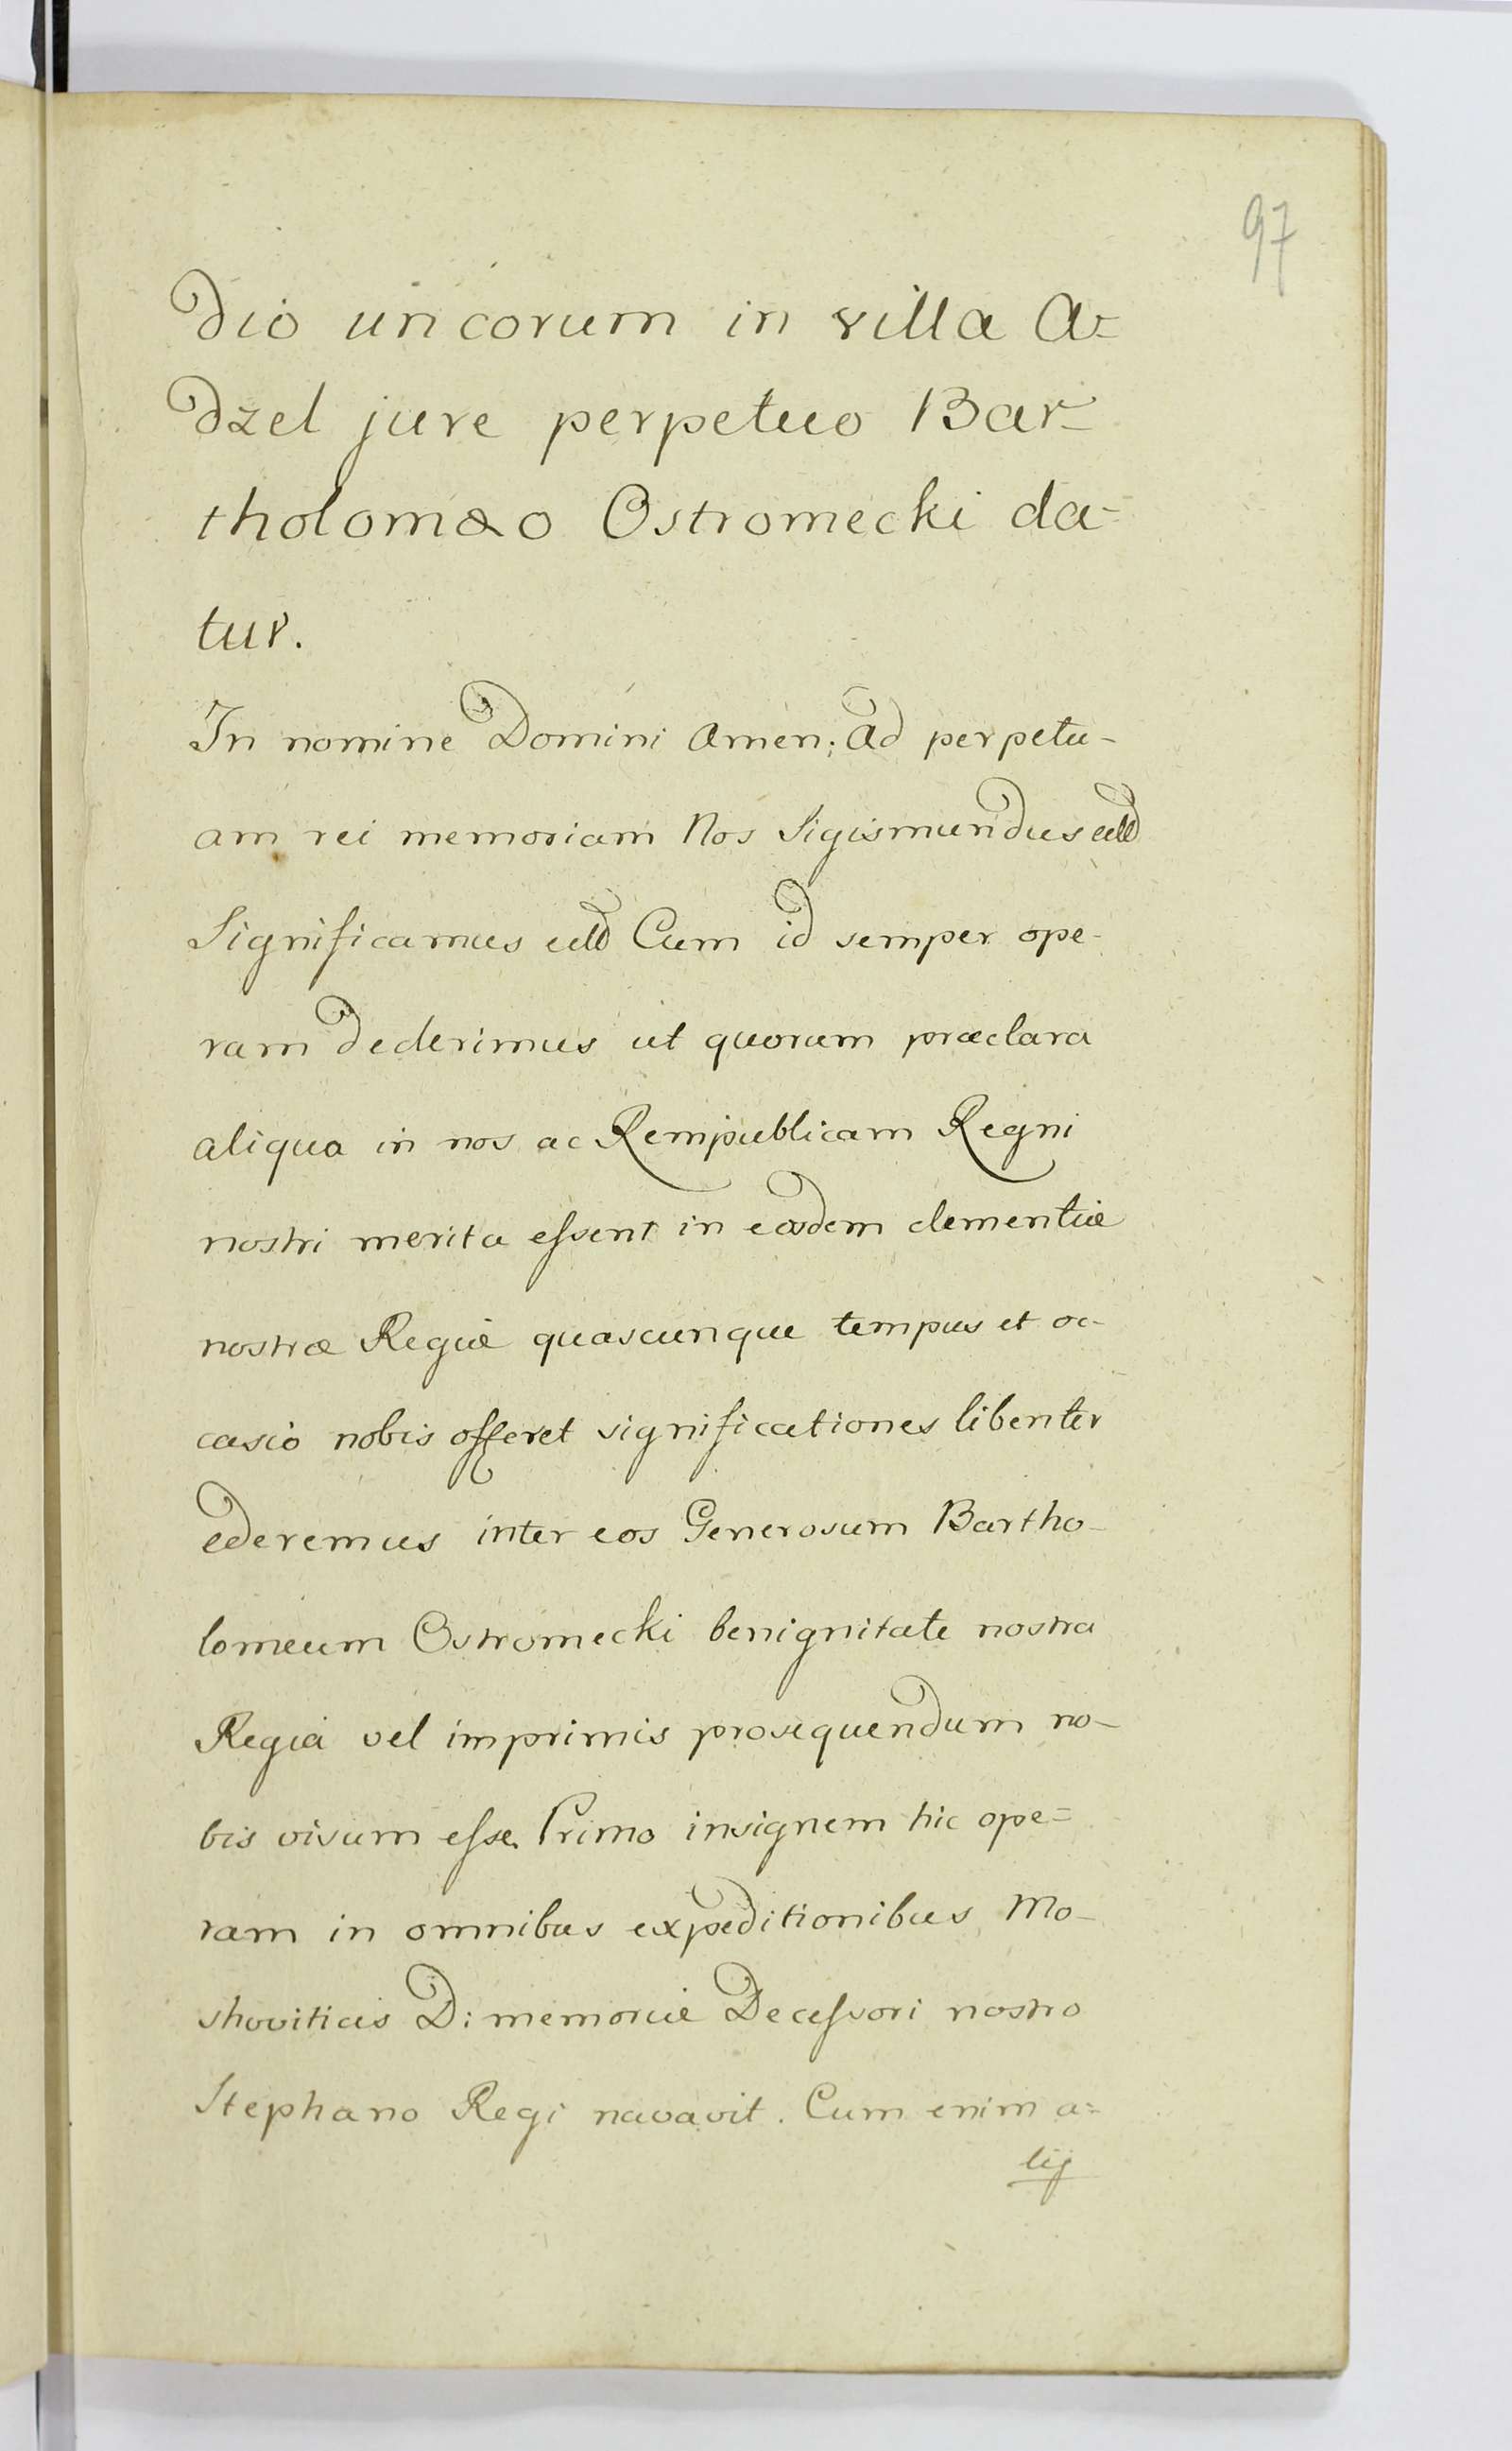 97
dio uncorum in villa A=
dzel jure perpetuo Bar-
tholomæo Ostromecki da=
tur.
In nomine Domini Amen; Ad perpetu-
am rei memoriam Nos Sigismundus
Significamus Cum id semper ope-
ram dederimus ut quorum præclara
aliqua in nos ac Rempublicam Regni
nostri merita essent in eosdem clementiæ
nostræ Regiæ quascunque tempus et oc-
casio nobis offeret significationes libenter
ederemus inter eos Generosum Bartho-
lomeum Ostromecki benignitate nostra
Regia vel imprimis prosequendum no-
bis visum esse. Primo insignem hic ope=
ram in omnibus expeditionibus Mo-
shoviticis D: memoriæ Decessori nostro
Stephano Regi navavit. Cum enim a=
lij